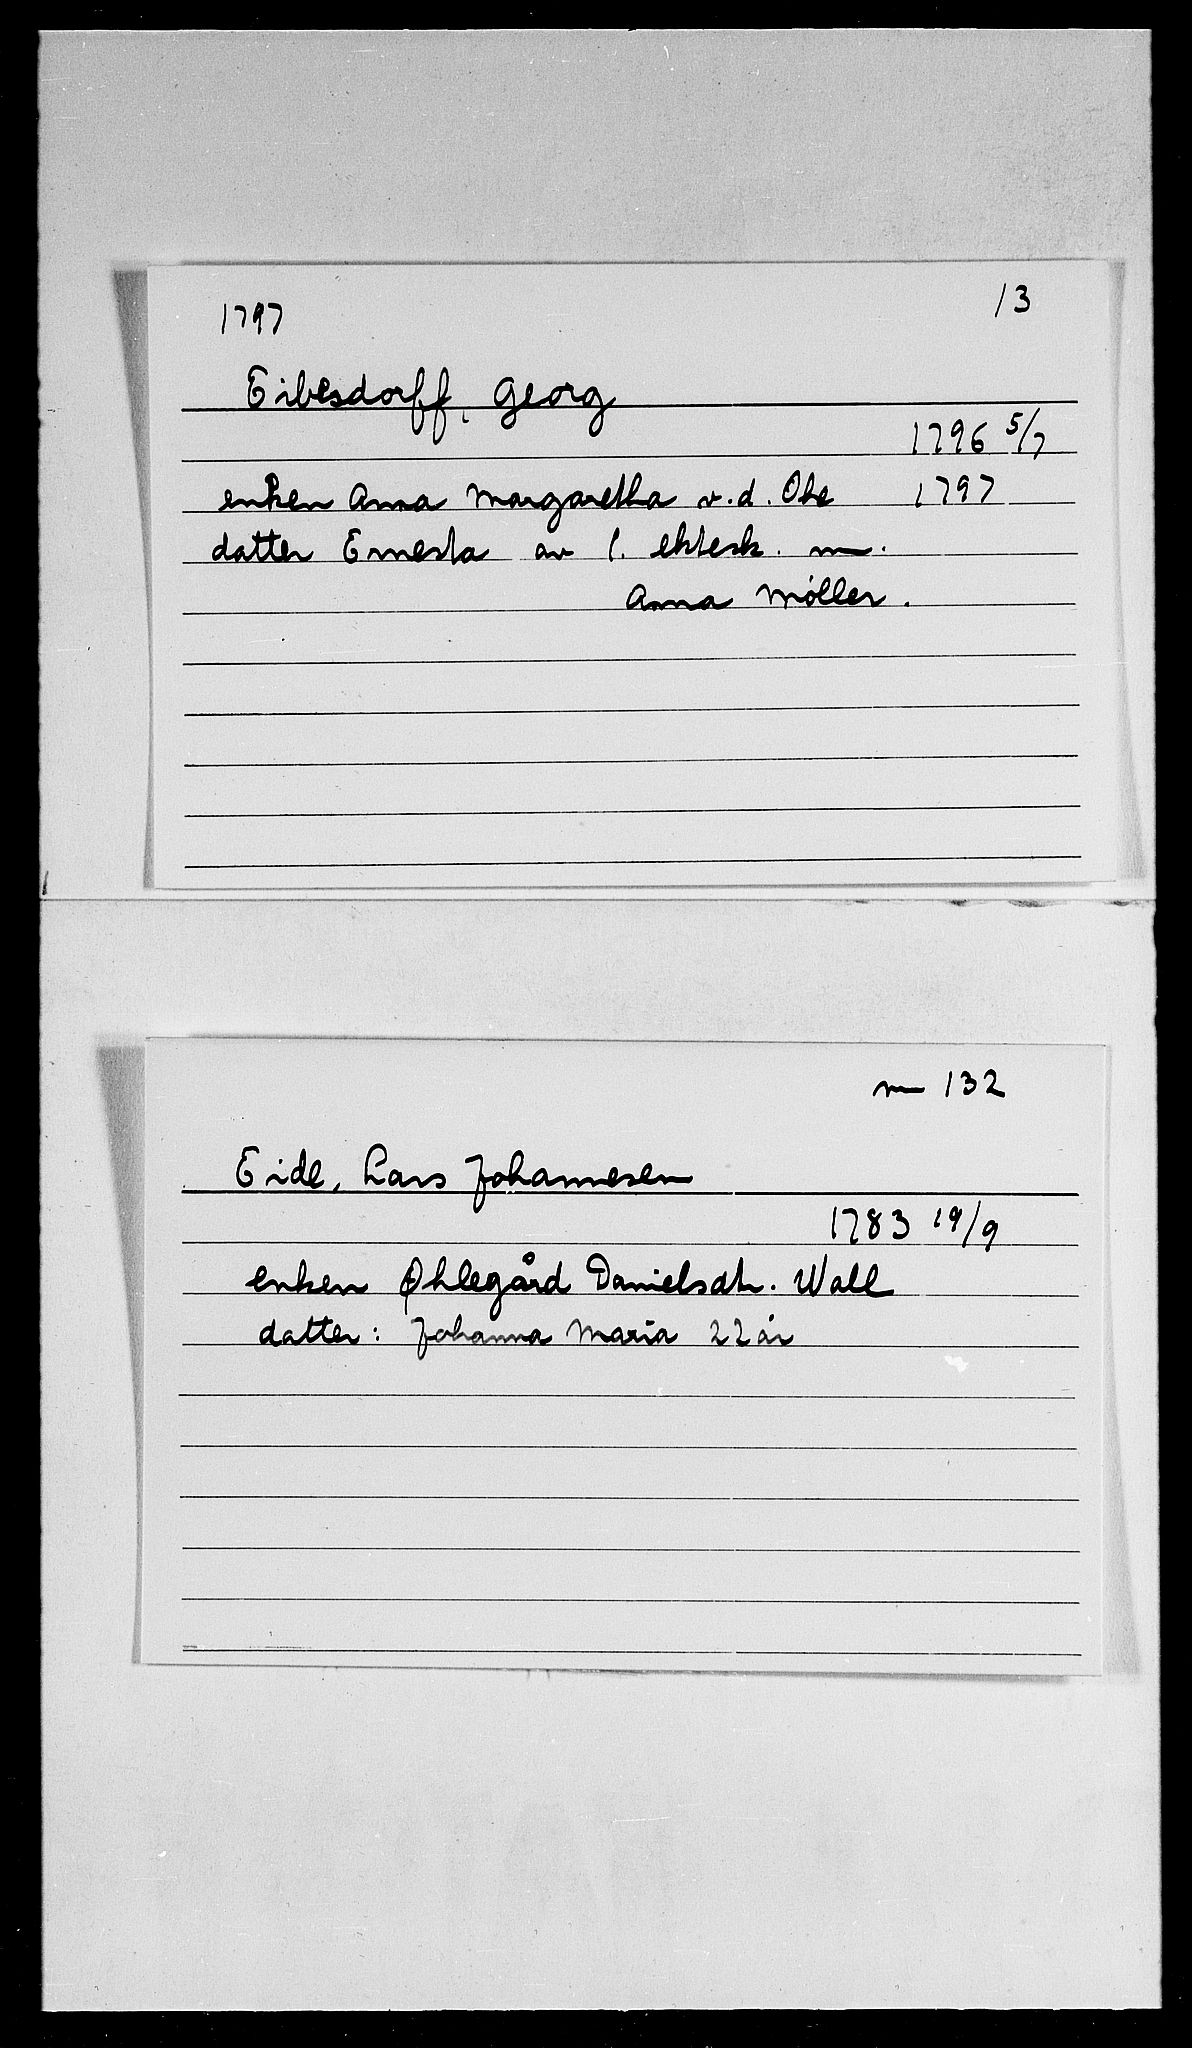 1797 13
Eibesdorff, Georg
1796 5/7
enken Anna Margaretha v.d. Ohe 1797
datter Ernesta av 1. ektesk. m.
Anna Møller.
m 132
Eide, Lars Johannesen
1783 19/9
enken Øhlegård Danielsdtr. Wall
datter: Johanna Maria 22 år